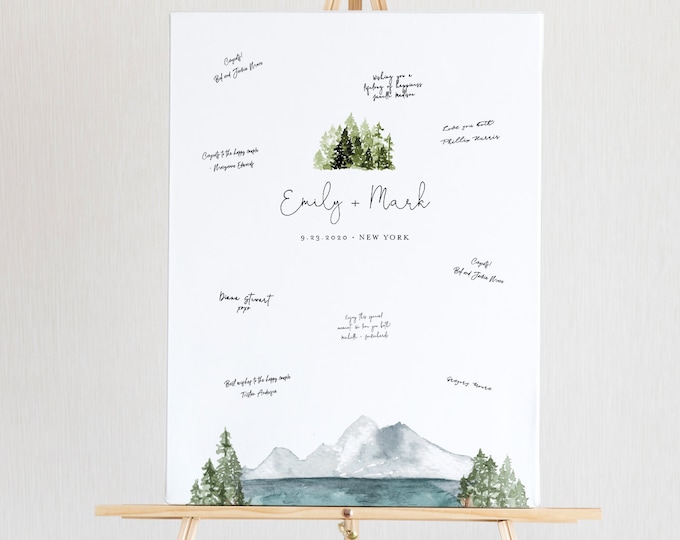 Congrats!
Bob and Jackie Moore
Wishing you a
lifelong of happiness
Love you both!
Phillip Harris
Congrats to the happy couple
- Maryanne Edwards
Emily + Mark
9.23.2020 • NEW YORK
Congrats!
Bob and Jackie Moore
Diane Stewart
xoxo
Enjoy this special
moment. We love you both!
Best wishes to the happy couple
Tristan Anderson
Gregory